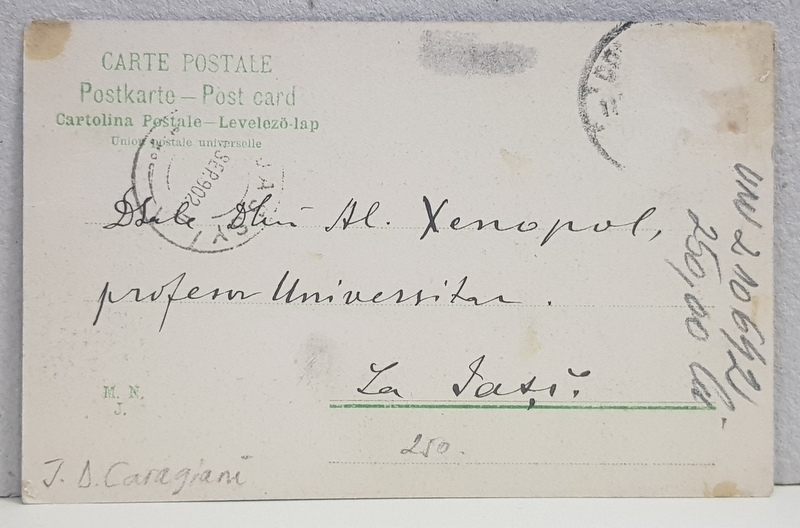 CARTE POSTALE
Postkarte – Post card
Cartolina Postale – Levelező-lap
Union postale universelle
SEP 902
Dsale Dlui Al. Xenopol,
profesor Universitar.
La Iași.
M. N.
J.
250.
J. D. Caragiani
250,00 lei.